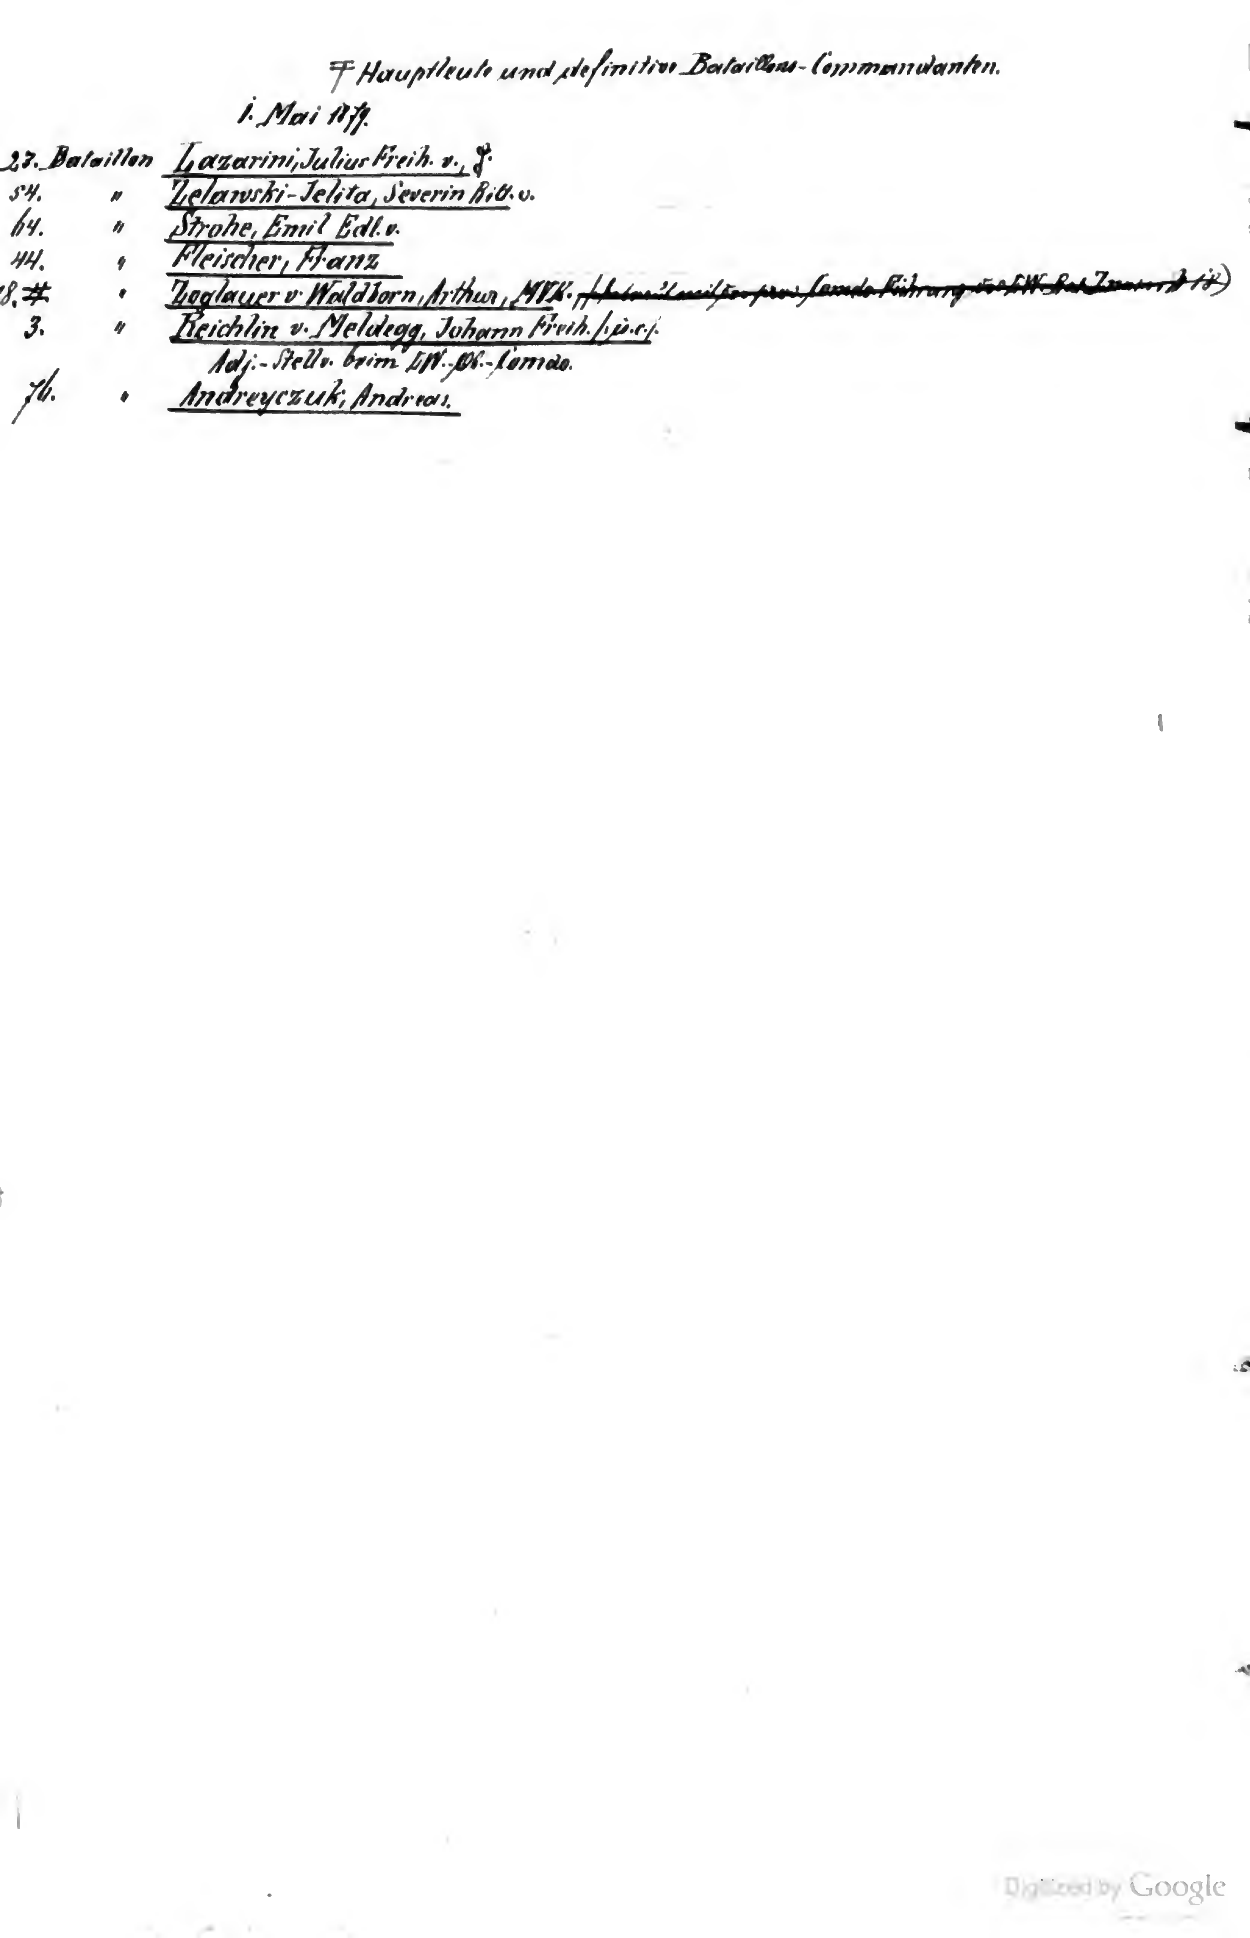 Hauptleute und definitive Bataillons-Commandanten.
1. Mai 1879.
23. Bataillon Lazarini, Julius Freih. v.,
54. " Zelawski-Jelita, Severin Ritt. v.
64. " Strohe, Emil Edl. v.
44. " Fleischer, Franz
" Zoglauer v. Waldborn, Arthur, MVK.
3. " Reichlin v. Meldegg, Johann Freih.
Adj.-Stellv. beim LW.-
76. " Andreyczuk, Andreas.
Digitized by Google